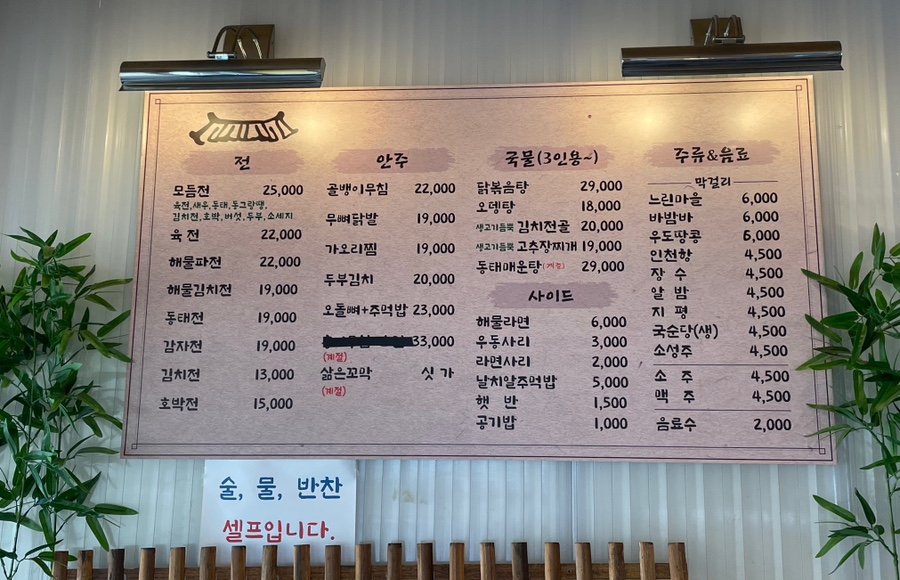 전
모듬전 25,000
육전,새우,동태,동그랑땡,
김치전,호박,버섯,두부,소세지
육전 22,000
해물파전 22,000
해물김치전 19,000
동태전 19,000
감자전 19,000
김치전 13,000
호박전 15,000
안주
골뱅이무침 22,000
무뼈닭발 19,000
가오리찜 19,000
두부김치 20,000
오돌뼈+주먹밥 23,000
33,000
(계절)
삶은꼬막 싯가
(계절)
국물(3인용~)
닭볶음탕 29,000
오뎅탕 18,000
생고기듬뿍 김치전골 20,000
생고기듬뿍 고추장찌개 19,000
동태매운탕(계절) 29,000
사이드
해물라면 6,000
우동사리 3,000
라면사리 2,000
날치알주먹밥 5,000
햇반 1,500
공기밥 1,000
주류&음료
막걸리
느린마을 6,000
바밤바 6,000
우도땅콩 6,000
인천항 4,500
장수 4,500
알밤 4,500
지평 4,500
국순당(생) 4,500
소성주 4,500
소주 4,500
맥주 4,500
음료수 2,000
술, 물, 반찬
셀프입니다.